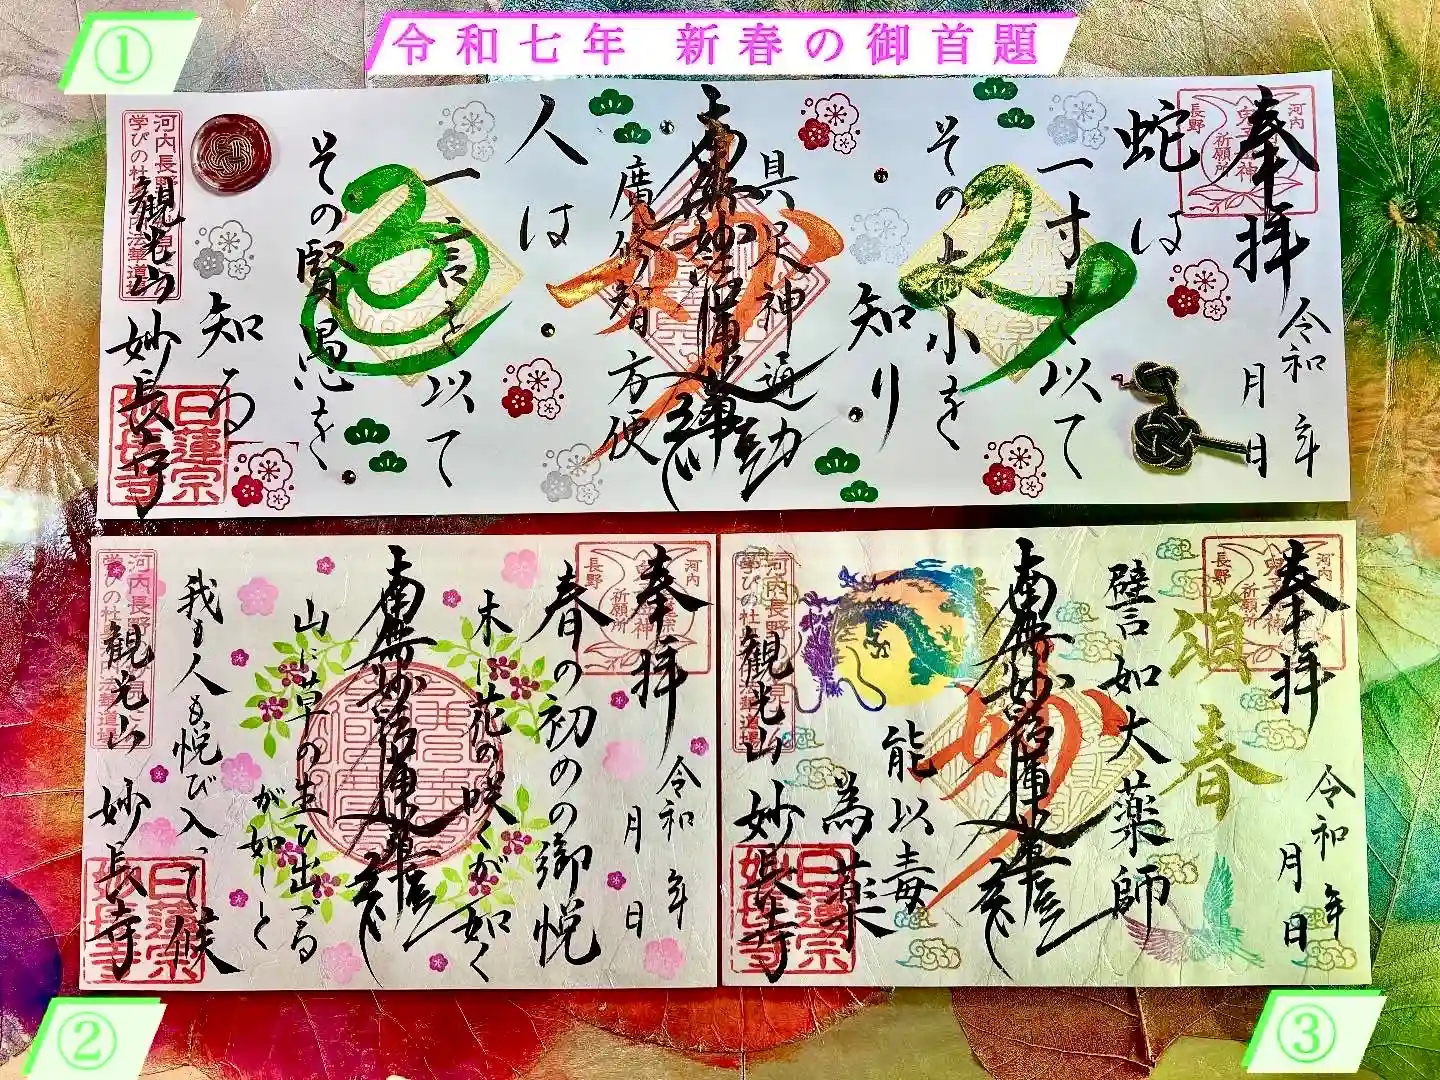 ①
令和七年 新春の御首題
奉拝
令和 年
月 日
河内
長野
祈願所
蛇は
一寸を以て
その大小を
知り
具足神通力
南無妙法蓮華経
妙
廣修智方便
人は
一言を以て
その賢愚を
知る
河内長野
学びの杜
法華道場
観光山 妙長寺
日蓮宗
妙長寺
奉拝
令和 年
月 日
河内
長野
祈願所
春の初めの御悦
木に花の咲くが如く
南無妙法蓮華経
山に草の生ひ出づる
が如しと
我も人も悦び入って候
河内長野
学びの杜
法華道場
観光山 妙長寺
日蓮宗
妙長寺
奉拝
令和 年
月 日
河内
長野
祈願所
頌春
譬如大薬師
南無妙法蓮華経
妙
能以毒
為薬
河内長野
学びの杜
法華道場
観光山 妙長寺
日蓮宗
妙長寺
②
③